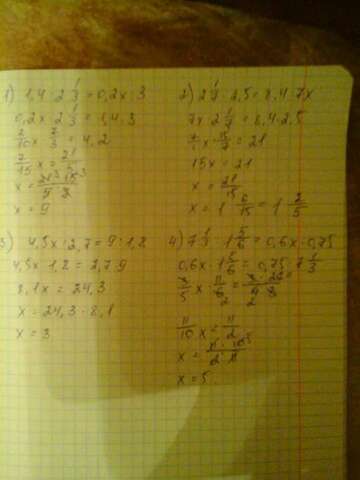 1) 1,4 : 2 1/3 = 0,2x : 3
0,2x · 2 1/3 = 1,4 · 3
2/10 x · 7/3 = 4,2
7/15 x = 21/5
x = 21·15/5·7
x = 9
2) 2 1/7 : 2,5 = 8,4 : 7x
7x · 2 1/7 = 8,4 · 2,5
7/1 x · 15/7 = 21
15x = 21
x = 21/15
x = 1 6/15 = 1 2/5
3) 4,5x : 2,7 = 9 : 1,8
4,5x · 1,8 = 2,7 · 9
8,1x = 24,3
x = 24,3 : 8,1
x = 3
4) 7 1/3 : 1 5/6 = 0,6x : 0,75
0,6x · 1 5/6 = 0,75 · 7 1/3
3/5 x · 11/6 = 3·22/4·3
11/10 x = 11/2
x = 11·10/2·11
x = 5.